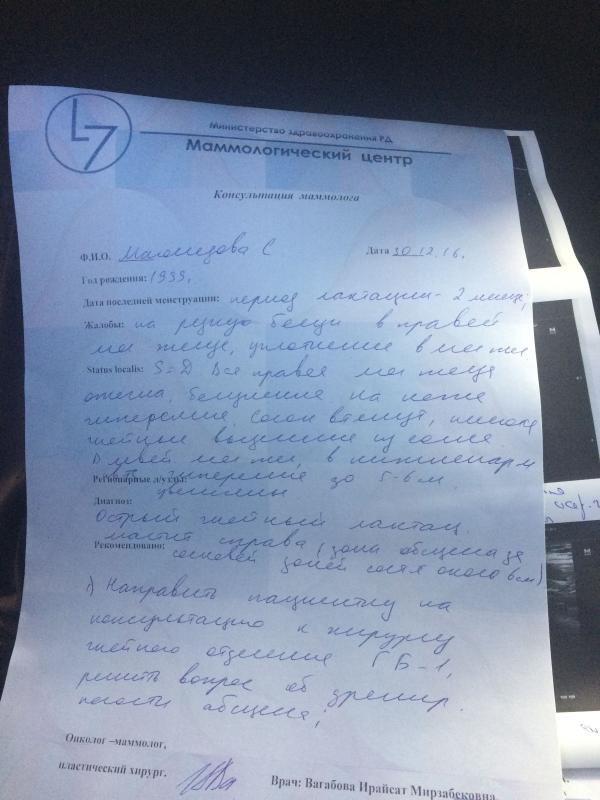 L7
Министерство здравоохранения РД
Маммологический центр
Консультация маммолога
Ф.И.О. Магомедова С Дата 30.12.16.
Год рождения:
Дата последней менструации: период лактации - 2 месяца,
Жалобы: на боли в правой
мол железе, уплотнение в мол жел
Status localis: S=D Вся правая мол железа
отечна, на коже
гиперемия, Сосок втянут,
гнойные из соска
Регионарные л/узлы: до 5-6 м.
увеличены
Диагноз:
Острый гнойный лактац.
мастит справа (зона абсцесса за
Рекомендовано: соска около 6см)
1) Направить пациентку на
консультацию к хирургу
гнойного отделения ГБ-1,
решить вопрос об дренир.
полости абсцесса;
Онколог –маммолог,
пластический хирург.
Врач: Вагабова Ирайсат Мирзабековна